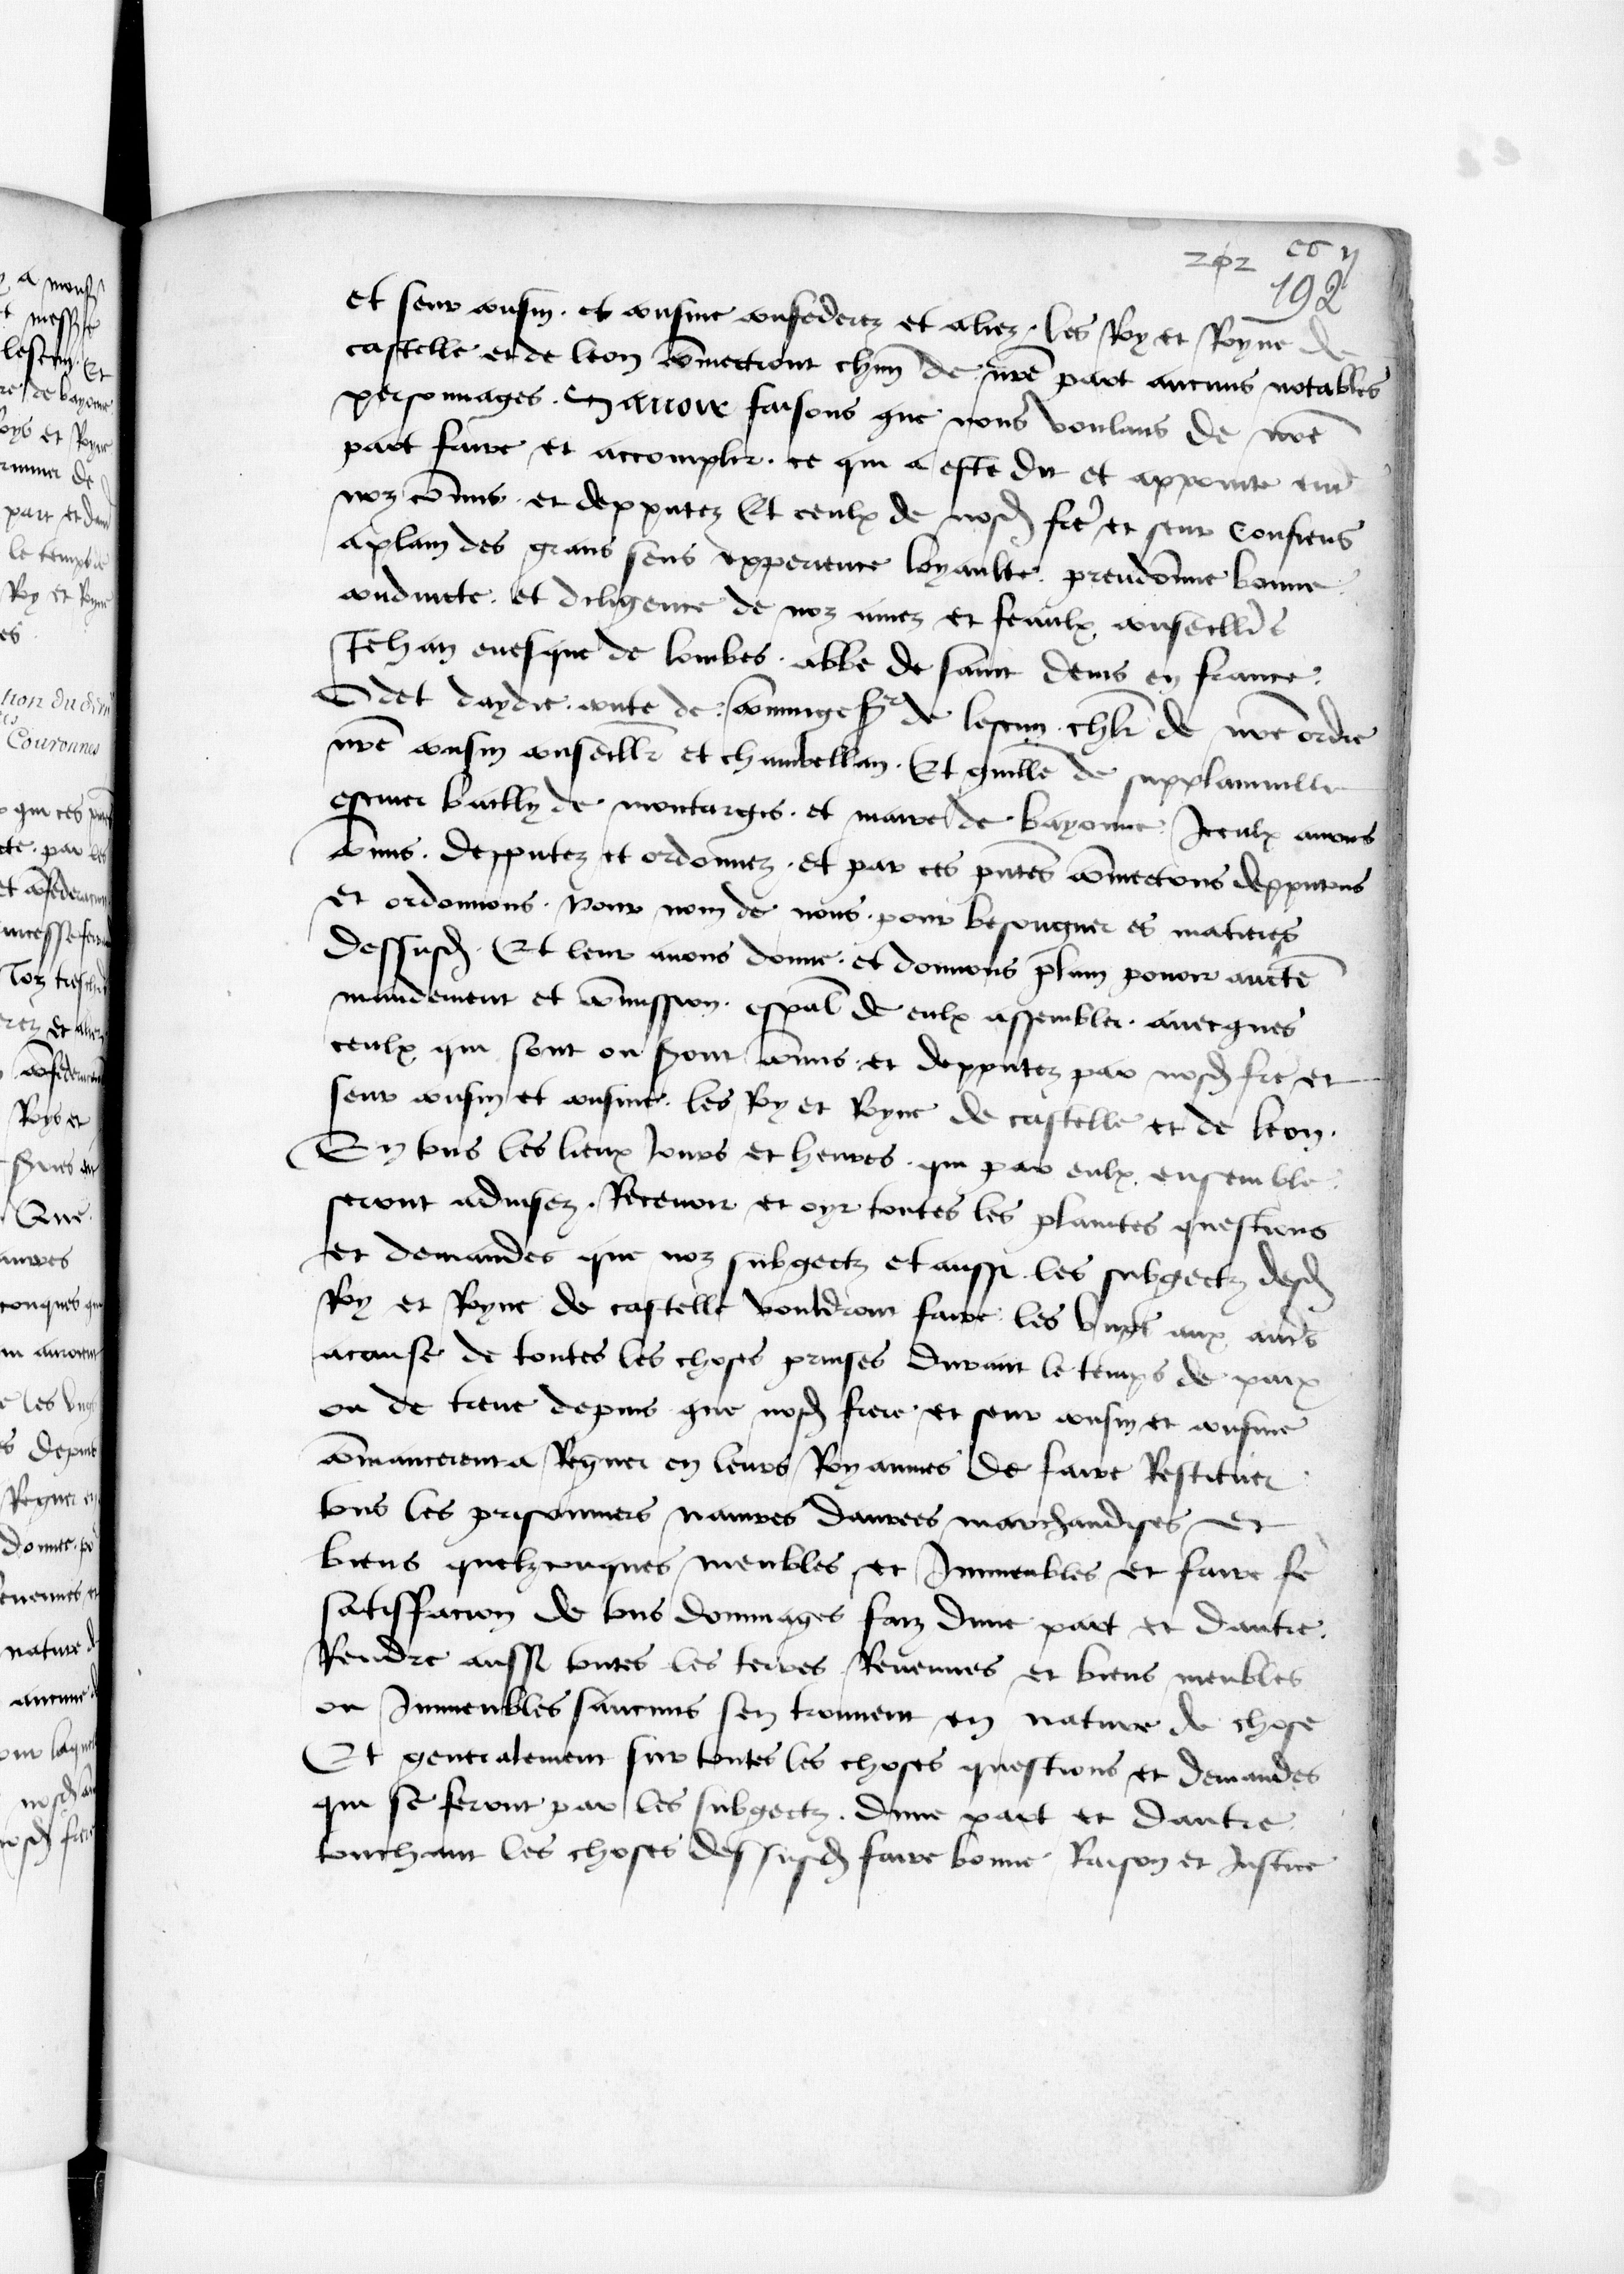 202 co ij
192
et seur cousin et cousine confederez et aliez les Roy et Royne de
castelle et de leon commectront chun de nre part aucuns notables
personnages. Savoir faisons que nous voulans de nre
part faire et accomplir ce qui a este dit et appointe entre
noz commis et depputez Et ceulx de nosd frere et seur Confiens
aplain des grans sens experience loyaulte preudomme bonne
conduicte et diligence de noz amez et feaulx conseillers
Jehan evesque de lombes abbe de saint denis en france
Odet daydie conte de comminge sr de lescun chlr de nre ordre
nre cousin conseillr et chambellan Et guille de supplainville
escuier bailly de montargis et maire de bayonne Iceulx avons
commis depputez et ordonnez et par ces pntes commectons depputons
et ordonnons pour nom de nous pour besongner es matieres
dessusd Et leur avons donne et donnons plain povoir aucte
mandement et commission espal de eulx assembler avecques
ceulx qui sont ou seront commis et depputez par nosd frere et
seur cousin et cousine les Roy et Royne de castelle et de leon
En tous les lieux Jours et heures qui par eulx ensemble
seront advisez Recevoir et oyr toutes les plaintes questions
et demandes que noz subgectz et aussi les subgectz desd
Roy et Royne de castelle vouldront faire les ungs aux autres
acause de toutes les choses prinses durant le temps de paix
ou de treve depuis que nosd frere et seur cousin et cousine
commancerent a Regner en leurs Royaumes de faire Restituer
tous les prisonniers navires danrees marchandises et
biens quelzconques meubles et Immeubles et faire fe
satisffacion de tous dommages faiz dune part et dautre
Rendre aussi toutes les terres Revenues et biens meubles
ou Immeubles saucuns sen trouvent en nature de chose
Et generalement sur toutes les choses questions et demandes
qui se feront par les subgectz dune part et dautre
touchant les choses dessusd faire bonne Raison et Justice